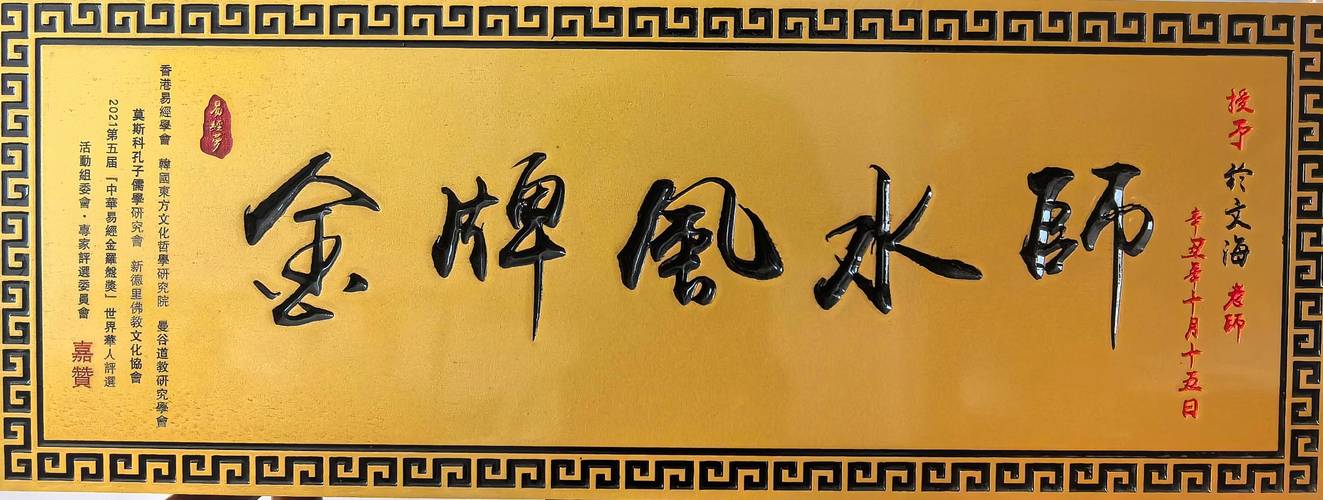 授予 於文海 老師
辛丑年十月十五日
金牌風水師
易經夢
香港易經學會 韓國東方文化哲學研究院 曼谷道教研究學會
莫斯科孔子儒學研究會 新德里佛教文化協會
2021第五届「中華易經金羅盤獎」世界華人評選
活動組委會·專家評選委員會 嘉贊